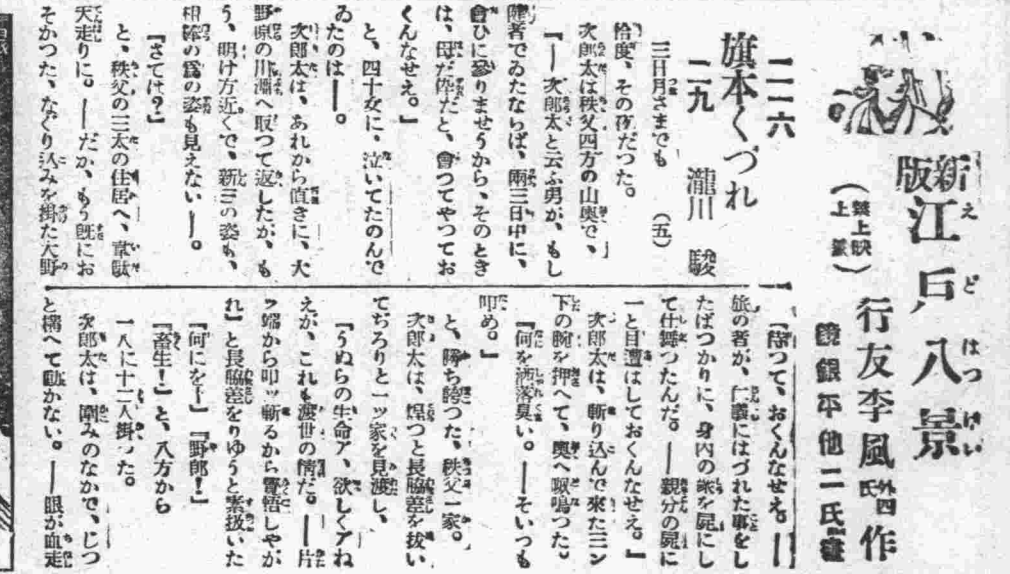 新版
江戸八景
えどはつけい
(禁上映上演)
行友李風氏外四氏作
銀平他二氏
一一六
旗本くづれ
二九 瀧川駿
三日月さまでも (五)
恰度、その夜だつた。
次郎太は秩父四方の山奥で、
『――次郎太と云ふ男が、もし
健者でゐたならば、兩三日中に、
會ひに參りませうから、そのとき
は、母だ倅だと、會つてやつてお
くんなせえ。』
と、四十女に、泣いてたのんで
ゐたのは――。
次郎太は、あれから直きに、大
野原の川淵へ取つて返したが、も
う、明け方近くで、新三の姿も、
相棒の爲の姿も見えない――。
『さては?』
と、秩父の三太の住居へ、韋駄
天走りに。――だか、もう既にお
そかつた、なぐり込みを掛た大野
『待つて、おくんなせえ。――
旅の者が、仁義にはづれた事をし
たばつかりに、身内の衆を屍にし
て仕舞つたんだ。――親分の屍に
一と目遭はしておくんなせえ。』
次郎太は、斬り込んで來た三ン
下の腕を押へて、奥へ呶鳴つた。
『何を洒落臭い。――そいつも
叩め。』
と、勝ち誇つた、秩父一家。
次郎太は、惶つと長脇差を拔い
てぢろりと一ッ家を見渡し、
『うぬらの生命ア、欲しくアね
えが、これも渡世の情だ。――片
ッ端から叩ッ斬るから覺悟しやが
れ』と長脇差をりゆうと素扱いた
『何にを!』『野郎!』
『畜生!』と、八方から
一人に十二人掛つた。
次郎太は、圍みのなかで、じつ
と構へて動かない。――眼が血走